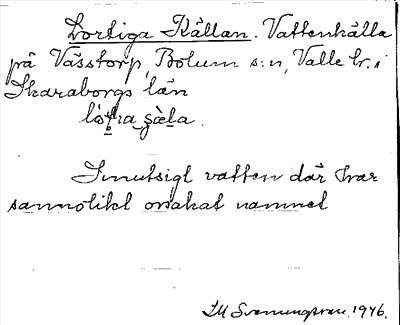 Lortiga Källan. Vattenkälla
på Vässtorp, Bolum s:n, Valle hr. i
Skaraborgs län
Smutsigt vatten där har
sannolikt orsakat namnet
SM Svenungsson. 1946.